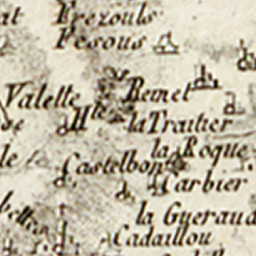 at Prezouls
Pesous
Valette
Remet
Hte la Trautier
se
la Roque
le Castelbon
Carbier
la Gueraud
Cadaillou